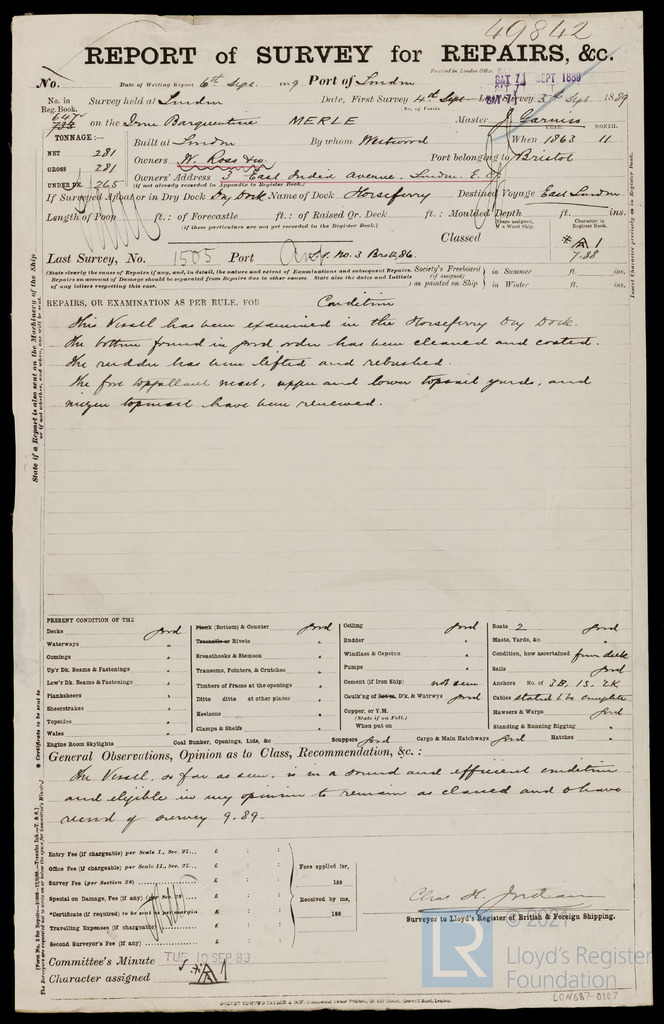 49842
REPORT of SURVEY for REPAIRS, &c.
No. Date of Writing Report 6th Sept. 1889 Port of London Received in London Office, SAT 7 SEPT 1889
No. in Reg. Book. Survey held at London Date, First Survey 4th Sept Last Survey 5th Sept 1889
on the Iron Barquentine MERLE Master J. Garniss
TONNAGE:— Built at London By whom Westwood When 1863 11
YEAR. MONTH.
NET 281 Owners W. Ross & Co. Port belonging to Bristol
GROSS 281 Owners' Address 3 East India Avenue, London. E.C.
UNDER DK. 265 (if not already recorded in Appendix to Register Book.)
If Surveyed Afloat or in Dry Dock Dry Dock Name of Dock Horseferry Destined Voyage East London
Length of Poop ft.: of Forecastle ft.: of Raised Qr. Deck ft.: Moulded Depth ft. ins.
(if these particulars are not yet recorded in the Register Book.)
Years assigned, if a Wood Ship. Character in Register Book.
Classed A 1
7.88
Last Survey, No. 1505 Port No. 3 Brstl 86.
(State clearly the cause of Repairs if any, and, in detail, the nature and extent of Examinations and subsequent Repairs. Repairs on account of Damage should be separated from Repairs due to other causes. State also the dates and Initials of any letters respecting this case.
Society's Freeboard (if assigned) as painted on Ship in Summer ft. ins.
in Winter ft. ins.
REPAIRS, OR EXAMINATION AS PER RULE, FOR Condition
This Vessel has been examined in the Horseferry Dry Dock.
The bottom found in good order has been cleaned and coated.
The rudder has been lifted and rebushed.
The fore topgallant mast, upper and lower topsail yards, and
mizen topmast have been renewed.
PRESENT CONDITION OF THE
Decks good Plank (Bottom) & Counter good Ceiling good Boats 2 good
Waterways " Treenails or Rivets " Rudder " Masts, Yards, &c. "
Comings " Breasthooks & Stemson " Windlass & Capstan " Condition, how ascertained from deck
Up'r Dk. Beams & Fastenings " Transoms, Pointers, & Crutches " Pumps " Sails good
Low'r Dk. Beams & Fastenings " Timbers of Frame at the openings " Cement (if Iron Ship) not seen Anchors No. of 3B, 1S, 2K
Planksheers " Ditto ditto at other places " Caulk'ng of Bot'm, D'k, & Watrwys good Cables stated to be complete
Sheerstrakes " Keelsons " Copper, or Y.M. Hawsers & Warps good
Topsides " (State if on Felt.)
Wales " Clamps & Shelfs " When put on Standing & Running Rigging "
Engine Room Skylights Coal Bunker, Openings, Lids, &c Scuppers good Cargo & Main Hatchways good Hatches "
General Observations, Opinion as to Class, Recommendation, &c.:
The Vessel, so far as seen, is in a sound and efficient condition
and eligible in my opinion to remain as classed and to have
record of survey 9.89.
Entry Fee (if chargeable) per Scale I., Sec. 27... £ : :
Office Fee (if chargeable) per Scale II., Sec. 27... £ : :
Survey Fee (per Section 28) £ : :
Special or Damage, Fee (if any) (per Sec. 28) £ : :
*Certificate (if required) to be sent as per margin £ : :
Travelling Expenses (if chargeable) £ : :
Second Surveyor's Fee (if any) £ : :
Fees applied for,
188
Received by me,
188
Chas H. Jordan
Surveyor to Lloyd's Register of British & Foreign Shipping.
Committee's Minute TUE 10 SEP 89
Character assigned A 1
State if a Report is also sent on the Machinery of the Ship
Insert Character precisely as in Register Book.
* Certificate to be sent to
© 2021
LR
Lloyd's Register
Foundation
LON687-0107